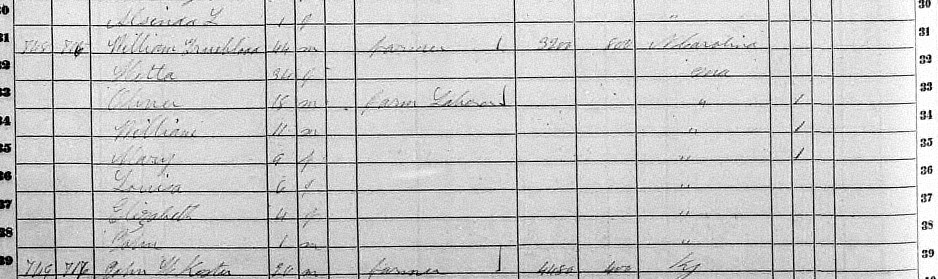 30 Alsinda L 1 f " 30
31 William Trueblood 44 m farmer 3200 800 N Carolina 31
32 36 f 32
33 Oliver 18 m farm Laborer " 1 33
34 William 11 m " 1 34
35 Mary 9 f " 1 35
36 Louisa 6 f " 36
37 Elizabeth 4 f " 37
38 John 1 m " 38
39 John W 30 m farmer 400 Ky 39